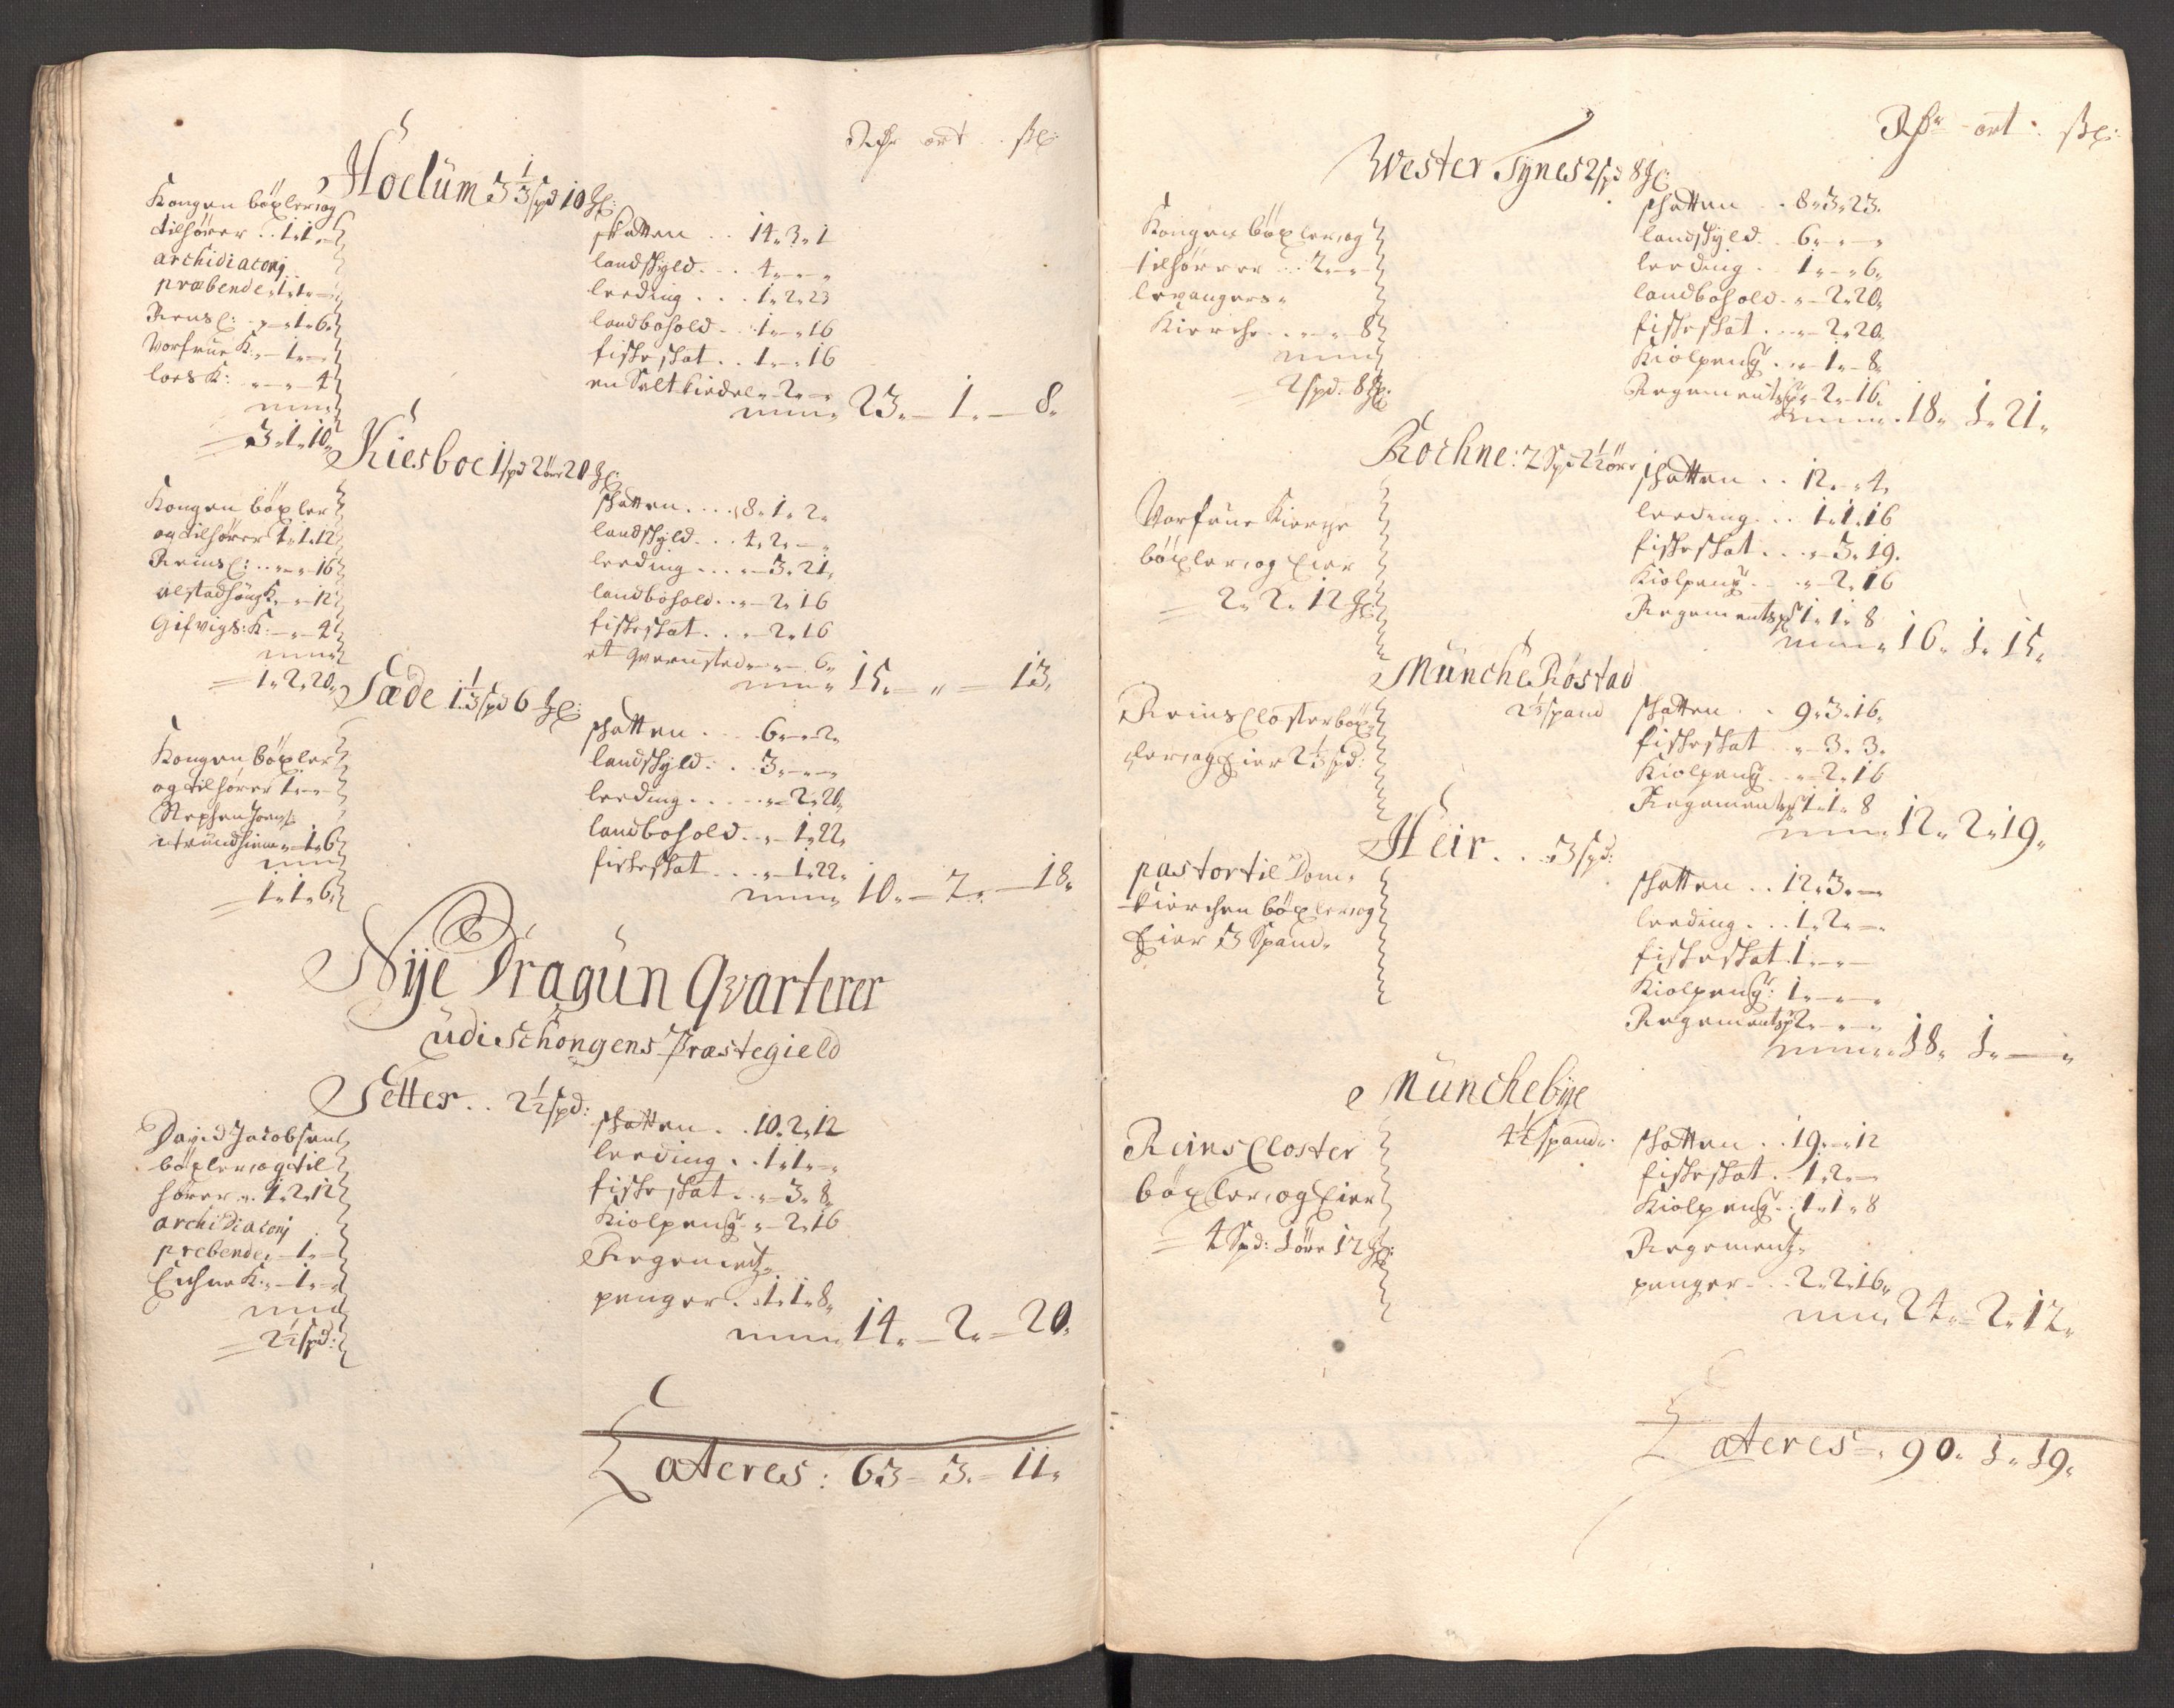 Rdr ort ßl:
Hoelüm 3 1/3 spd 10 Ml:
Kongen böxler, og
tilhörer .. 1„1„-
archidiaconj
præbende„1„1„-
Reins C: „-„1„6„
Vorfrue K„-1„-„
loes K: „-„-4
3„1„10„
skatten .. 14„3„1
landskyld ... 4„-„-„
leeding ... 1„2„23
landbohold .. 1„-„16
fiskeskat .. 1„-„16
en Salt Kiedel„2„-„
23„-1„-8„
Kiesboe 1 spd 2 öre 20 Ml:
Kongen böxler
og tilhörer 1„1„12
Reins C: ..„-„-16
alstadhöug K„-„-12
Gifvigs: K: -„-4
1„2„20„
skatten .... 8„1„2„
landskyld ... 4„2„-„
leeding ...„-3„21„
landbohold ..„-2„16
fiskeskat ..„-2„16
et qvernsted„-„-6„
15„-„-13„
Sæde 1 1/3 spd 6 Ml:
Kongen böxler
og tilhörer 1„-„-
i Trundhiem„-1„6
1„1„6„
skatten ... 6„-„2„
landskyld: .. 3„-„-„
leeding .....„-2„20„
landbohold ..„-1„22„
fiskeskat ...„-1„22„
10„-2„-18„
Nije Dragün Qvarterer
üdi Schongens Præstegield
Setter .. 2 1/2 spd:
David Jacobsen
böxler, og til
hörer „ 1„2„12
archidiaconj
prebende„-1„-
Eichne K:„-1„-„
2 1/2 spd:
skatten .. 10„2„12
leeding .. 1„1„-„
fiskeskat ..„-3„8„
Kiolpeng„-2„16
Regementz„
penger .. 1„1„8„
14„-2„-20„
Lateres: 63-3„-11„
Rdr ort ßl:
Wester Tynes 2 spd 8 Ml:
Kongen böxler, og
tilhörer .. 2„-„-
levangers„
Kierche ..„-„-8
2 spd: 8 Ml:
skatten .. 8„3„23„
landskyld .. 6„-„-„
leeding .. 1„-„6„
landbohold ..„-2„20„
fiskeskat ..„-2„20„
Kiolpeng ..„-1„8„
Regements p„-2„16„
18„1„21„
Rochne: 2 Spd 2 1/2 öre
Vorfrue Kierche
böxler, og Eier
2„2„12 Ml:
skatten .. 12„-„4„
leeding ... 1„1„16
fiskeskat ...„-3„19„
Kiolpeng ..„-2„16
Regements p 1„1„8
16„1„15„
Münche Röstad
2 1/3 spand
Reins Closter böx„
ler, og Eier 2 1/3 spd:
skatten .. 9„3„16„
fiskeskat „-3„3„
Kiolpeng ..„-2„16
Regements p 1„1„8
12„2„19„
Heir .. 3 spd:
pastor til Dom„
Kierchen böxler, og
Eier 3 Spand„
skatten .. 12„3„-„
leeding ... 1„2„-„
fiskeskat 1„-„-
Kiolpeng: 1„-„-„
Regements p 2„-„-„
18„1„-„
Münchebÿe
4 1/2 spand„
Reins Closter
böxler, og Eier
4 Spd: 1 öre 12 Ml:
skatten .. 19„-„12
fiskeskat .. 1„2„-
Kiolpeng .. 1„1„8
Regementz„
penger ... 2„2„16„
24„-2„12„
Lateres-„90„1„19„